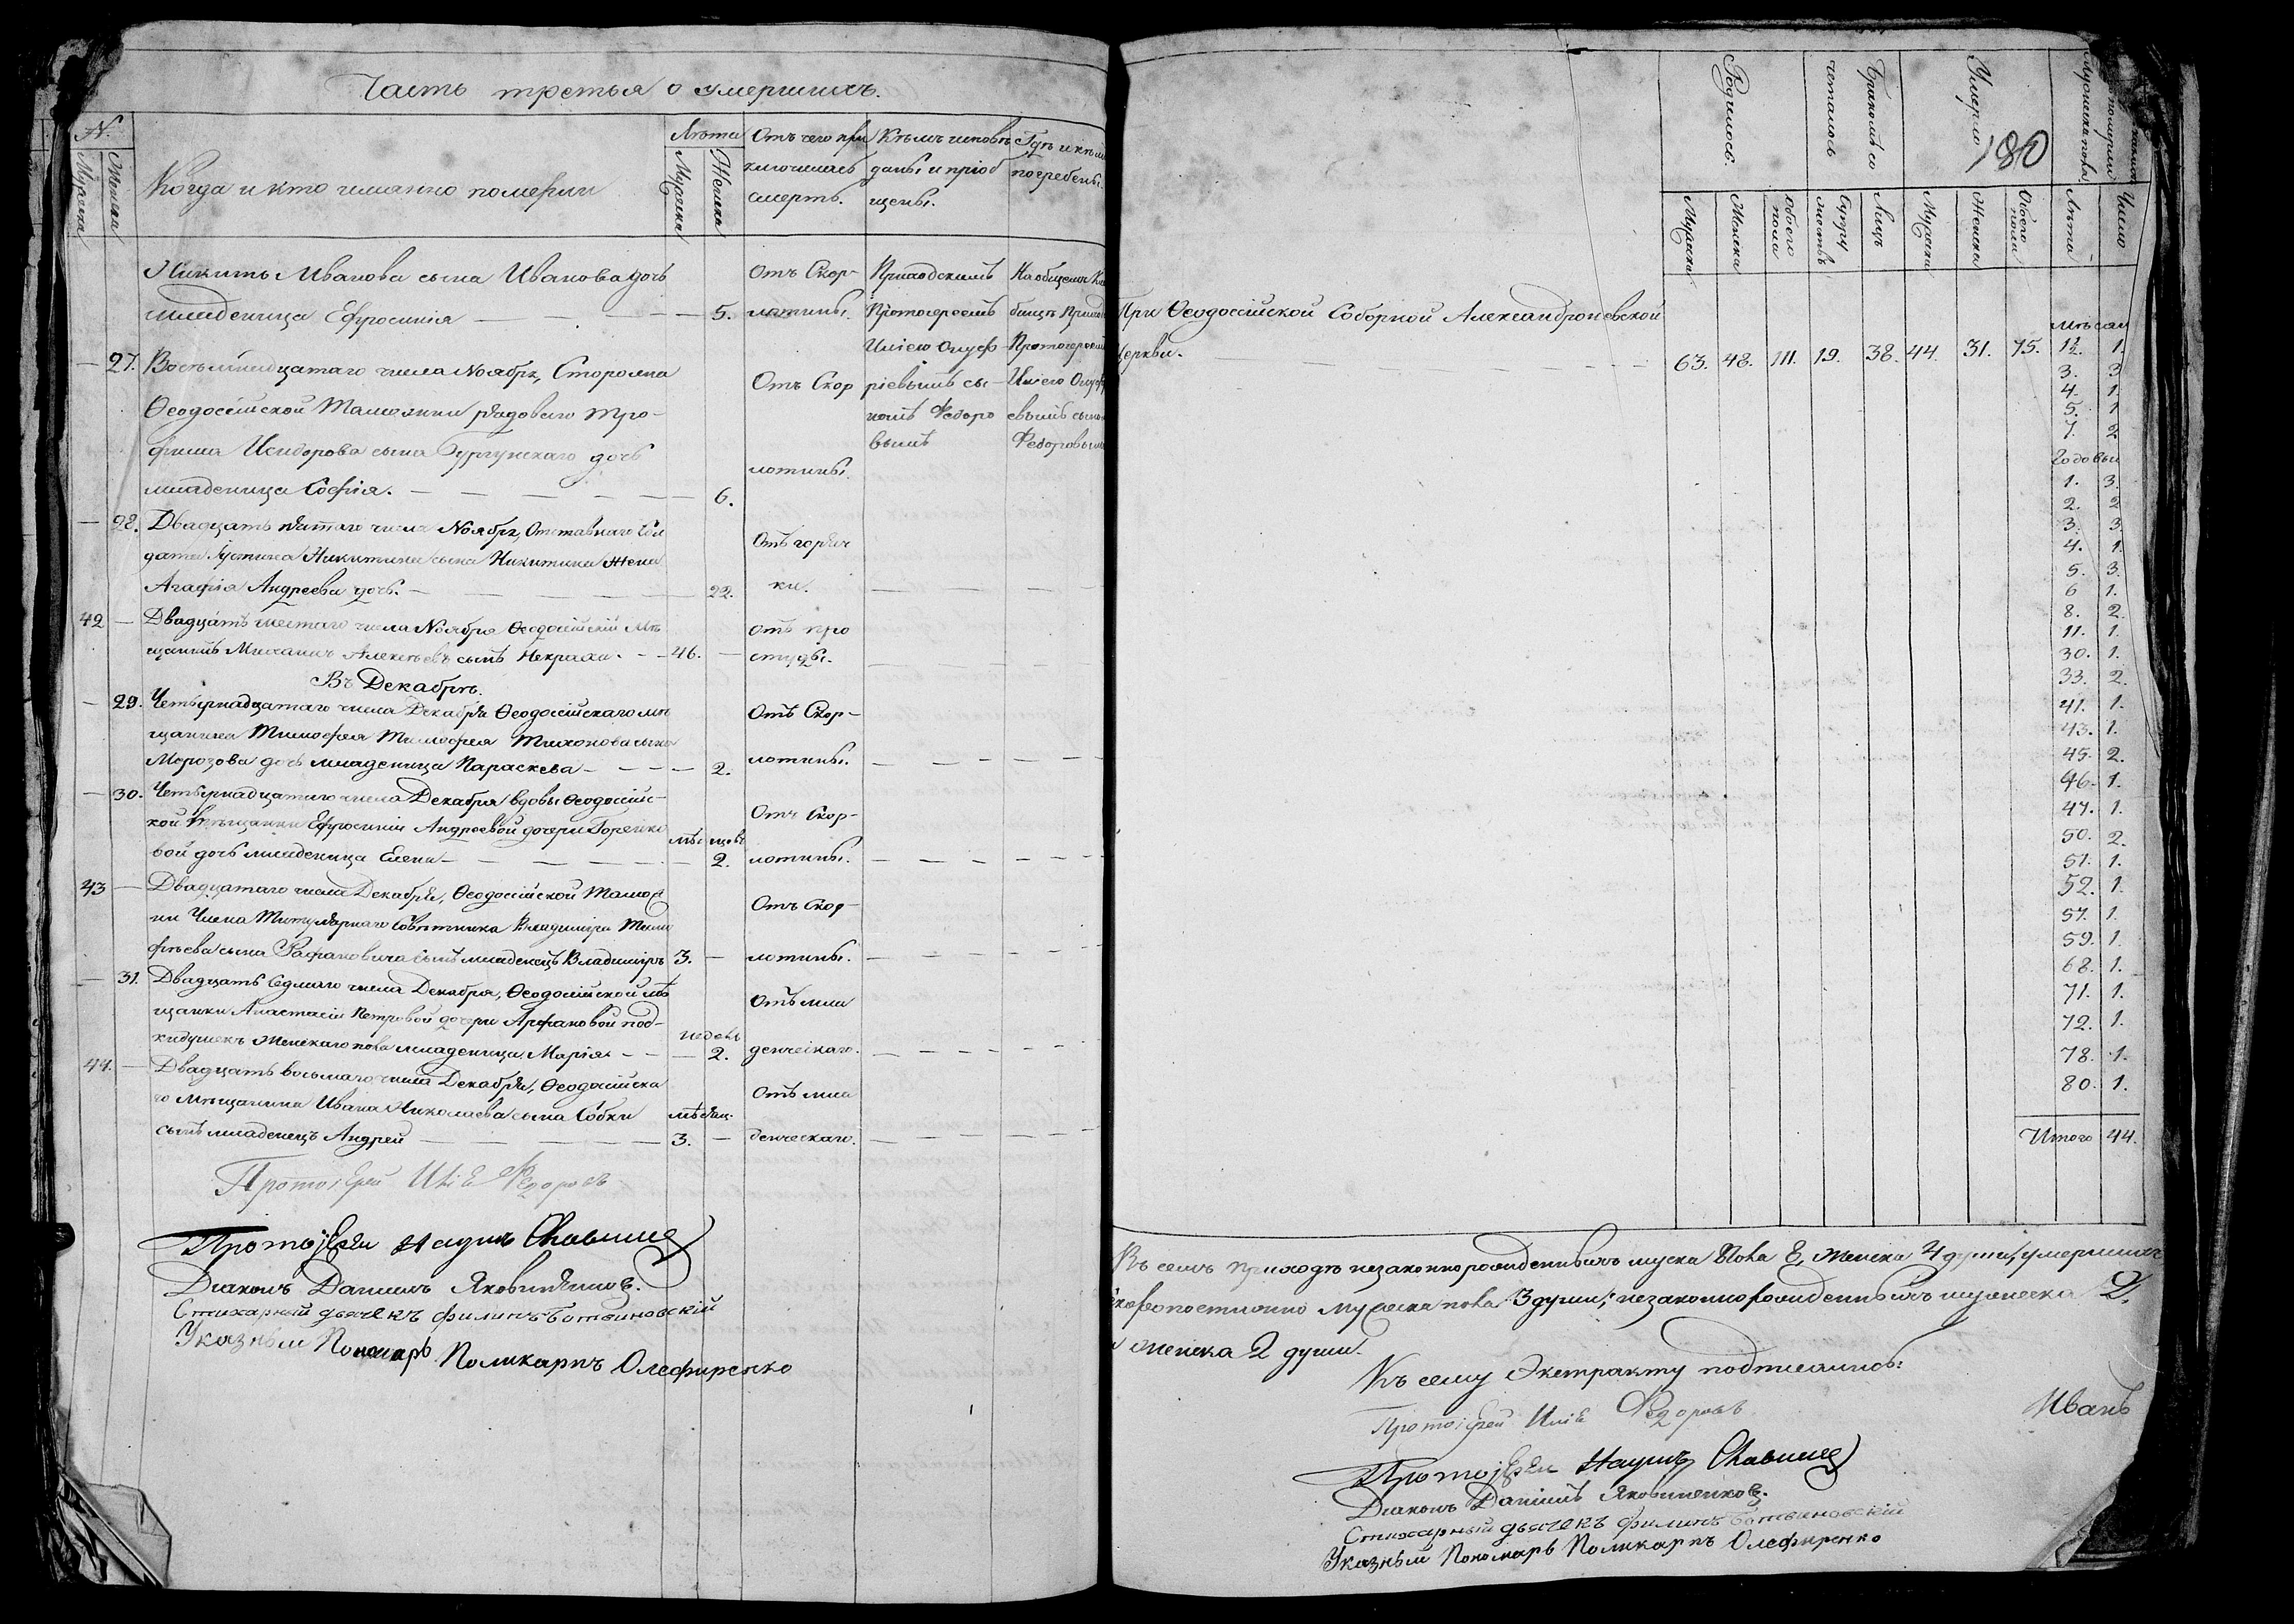 Часть третья о умершихъ.
N.
Мужска
Женска
Когда и кто именно померли
Лѣта
Мужска
Женска
Отъ чего при
ключилась
смерть.
Кѣмъ исповѣ
даны и пріоб
щены.
Гдѣ и кѣмъ
погребены.
Никиты Иванова сына Иванова дочь
младеница Ефросинія 5.
Отъ Скор-
лотины.
Приходскимъ
Протоіереемъ
Иліею Онуф-
ріевымъ сы-
номъ Федоро
вымъ
На общемъ Кла
бищѣ Приход
Протоіереемъ
Иліею Онуфрі
евымъ сыном
Федоровымъ
27. числа Ноября, Сторожа
Ѳеодосійской Таможни рядоваго Тро-
фима Исидорова сына дочь
младеница Софія. 6.
Отъ Скор
лотины.
28. Двадцать пятаго числа Ноября, Отставнаго Сол
дата Устина Никитина сына Никитина Жена
Агафія Андреева дочь. 22.
Отъ горяч
ки.
42 Двадцать шестаго числа Ноября Ѳеодосійскій Мѣ
щанинъ Михаилъ Алексѣевъ сынъ Некраха. 46.
Отъ про
студы.
Въ Декабрѣ.
29. Четырнадцатаго числа Декабря Ѳеодосійскаго мѣ
щанина Тимофея Тимофея Тихонова сына
Морозова дочь младеница Параскева 2.
Отъ Скор-
лотины.
30. Четырнадцатаго числа Декабря вдовы Ѳеодосійс-
кой Мѣщанки Ефросиніи Андреевой дочери Горенко
вой дочь младеница Елена мѣсяцовъ 2.
Отъ Скор-
лотины.
43 Двадцатаго числа Декабря, Ѳеодосійской Тамож
ни Члена Титулярнаго Совѣтника Владиміра Тимо
фѣева сына Рафаловича сынъ младенецъ Владиміръ 3.
Отъ Скор-
лотины.
31. Двадцать седмаго числа Декабря, Ѳеодосійской мѣ
щанки Анастасіи Петровой дочери Арфановой под-
кидушекъ Женскаго пола младеница Марія недель 2.
Отъ мла
денческаго.
44. Двадцать восьмаго числа Декабря, Ѳеодосійска
го Мѣщанина Ивана Николаева сына Собки
сынъ младенецъ Андрей мѣсяц. 3.
Отъ мла
денческаго.
Протоіерей Илія Федоровъ
Протоіерей Наумъ
Діаконъ Даніилъ
Стихарный дьячекъ филипъ Ботвиновскій
Указный Пономарь Поликарпъ Олефиренко
180
Родилось.
Бракомъ со
четалось
Умерло
Мужска
Женска
Обоего
пола
Супру
жествъ
Лицъ
Мужска
Женска
Обоего
пола
Лѣта
Число
При Ѳеодосійской Соборной Александроневской
Церкви. 63. 48. 111. 19. 38. 44. 31. 75.
Мѣсяц
1½. 1.
3. 3
4. 1.
5. 1
7. 2
Годовы
1. 3.
2. 2
3. 3
4. 1.
5. 3.
6 1.
8. 2.
11. 1.
30. 1.
33. 2.
41. 1.
43. 1.
45. 2.
46. 1.
47. 1.
50. 2.
51. 1.
52. 1.
57. 1.
59. 1.
68. 1.
71. 1.
72. 1.
78. 1.
80. 1.
Итого 44.
Въ семъ приходѣ незаконнорожденныхъ мужска пола женска 4 души, умершихъ
скоропостижно Мужеска пола 3 души; незаконнорожденныхъ мужеска 2,
и женска 2 души.
Къ сему Экстракту подписались:
Протоіерей Илія Федоровъ
Иванъ
Протоіерей Наумъ
Діаконъ Даніилъ
Стихарный дьячекъ филипъ Ботвиновскій
Указный Пономарь Поликарпъ Олефиренко